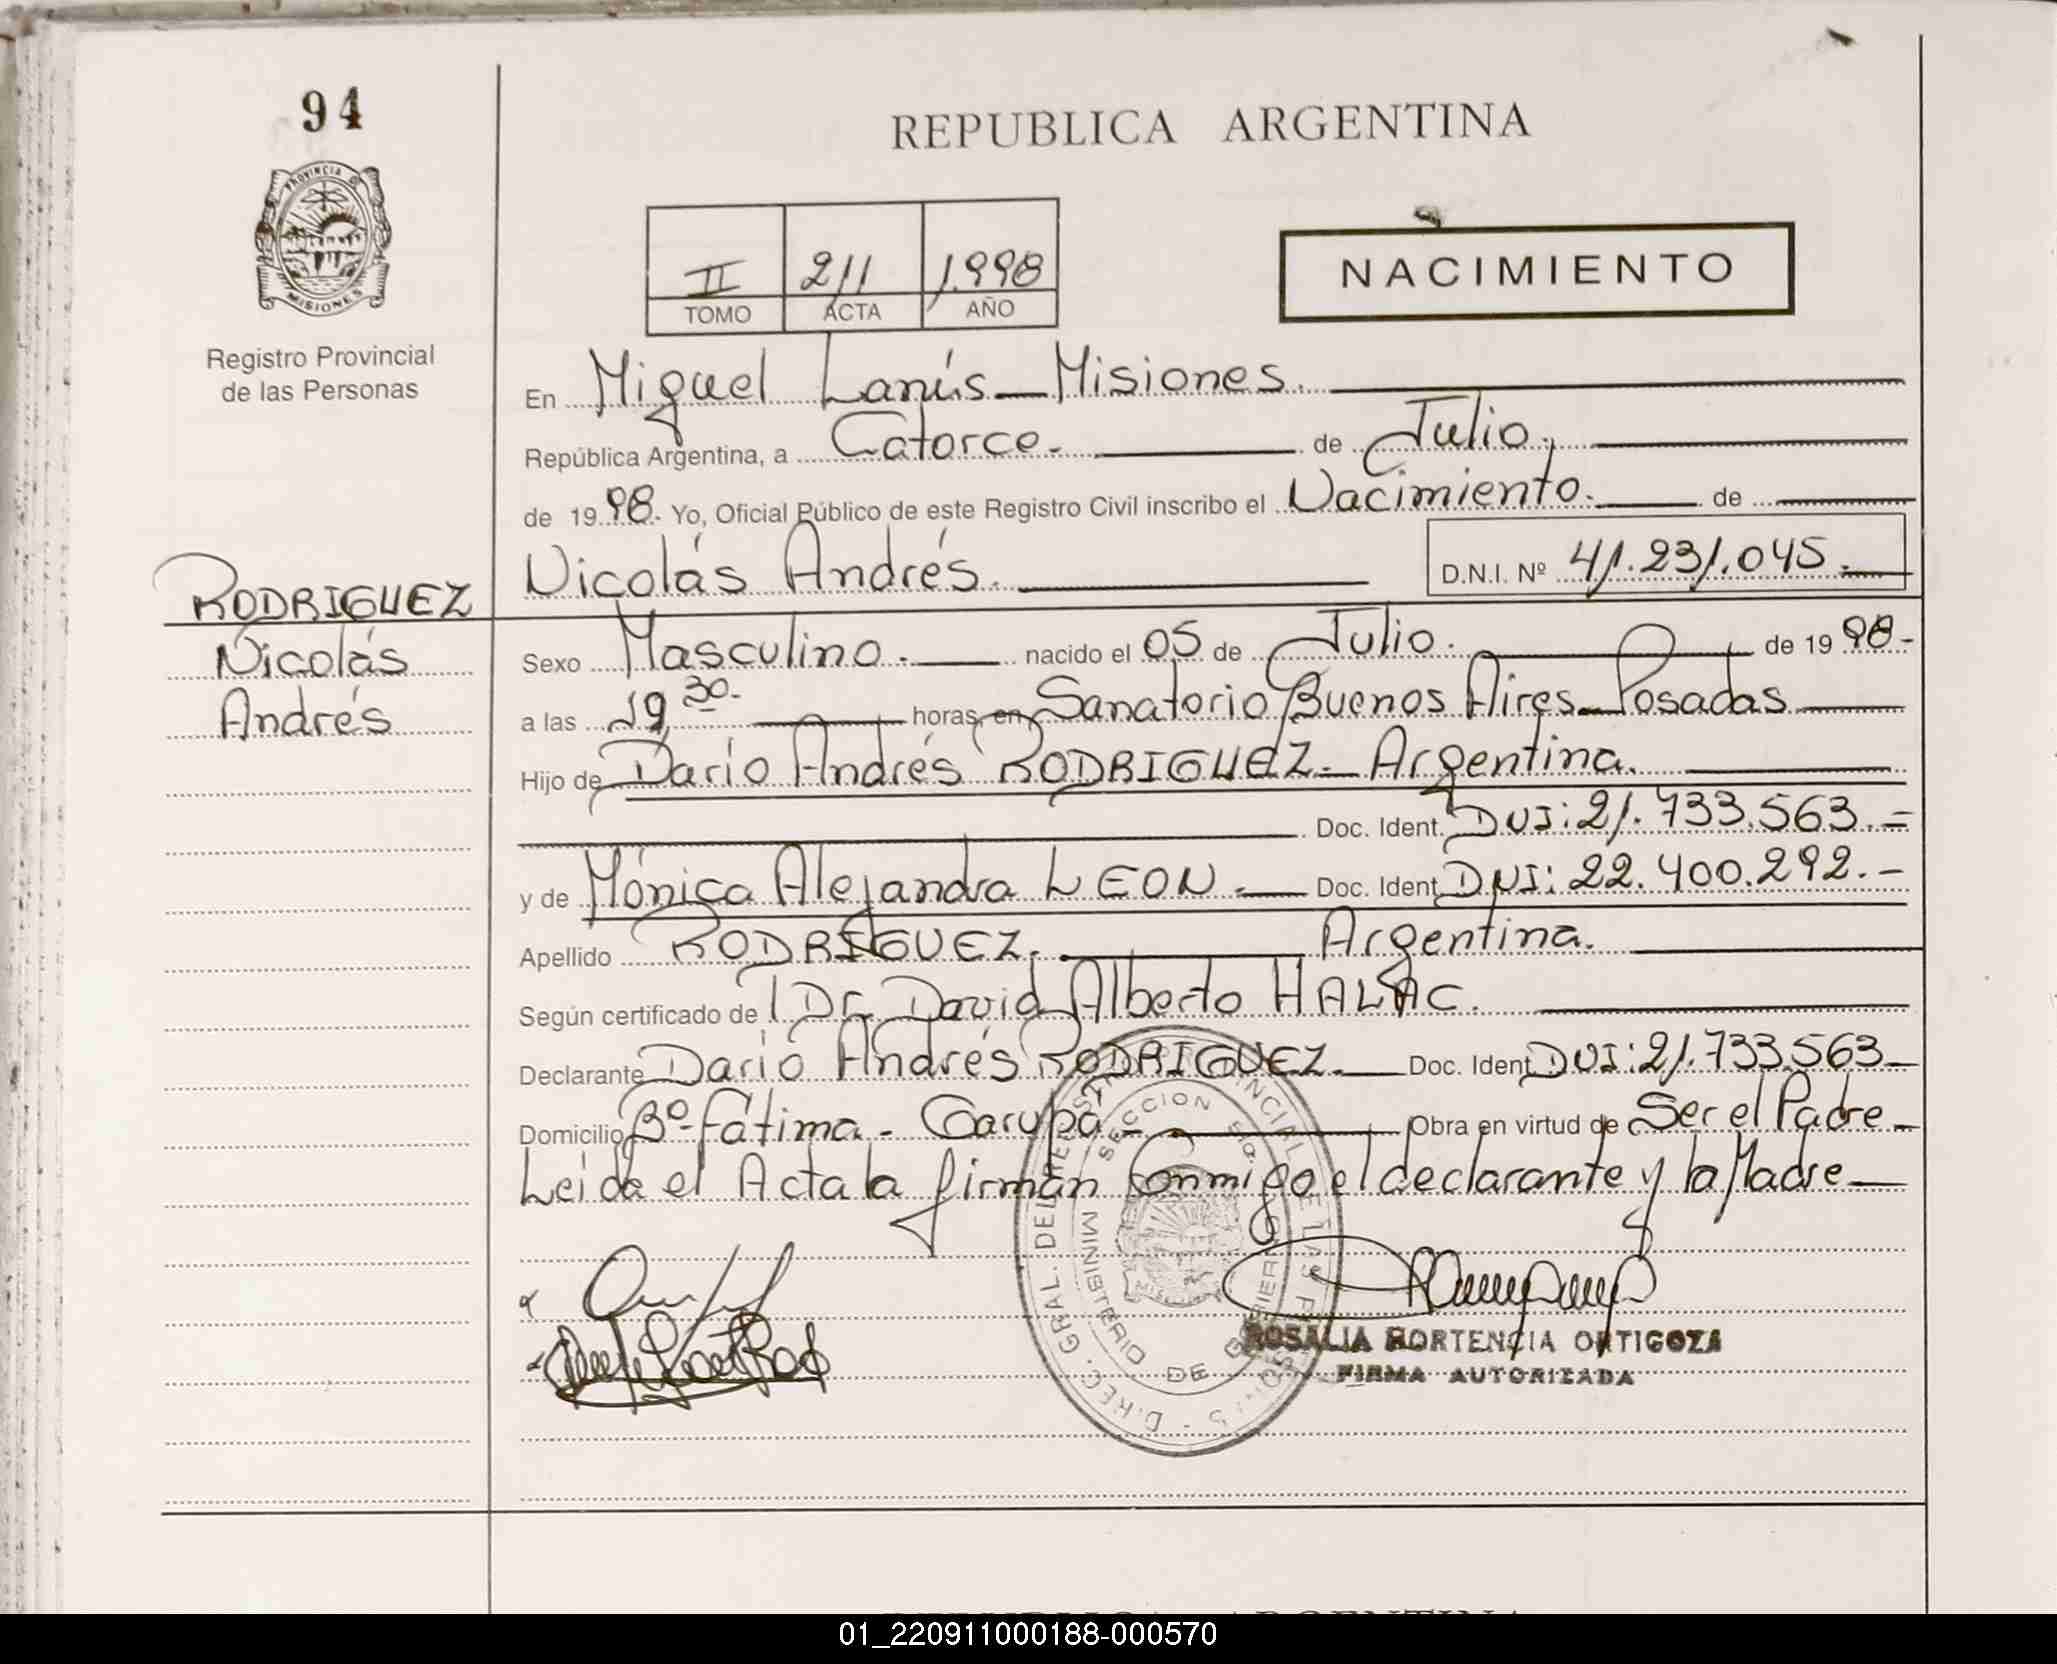 94
REPUBLICA ARGENTINA
PROVINCIA D
MISIONES
Registro Provincial
de las Personas
II 211 1.998
TOMO ACTA AÑO
NACIMIENTO
En Miguel Lanús - Misiones.
República Argentina, a Catorce. de Julio.
de 1998. Yo, Oficial Público de este Registro Civil inscribo el Nacimiento. de
Nicolás Andrés. D.N.I. Nº 41.231.045.
RODRIGUEZ
Nicolás
Andrés
Sexo Masculino. nacido el 05 de Julio. de 1998-
a las 19 30. horas, en Sanatorio Buenos Aires - Posadas
Hijo de Darío Andrés RODRIGUEZ - Argentina.
Doc. Ident. DNI: 21.733.563.=
y de Mónica Alejandra LEON. Doc. Ident. DNI: 22.400.292.-
Apellido RODRIGUEZ. Argentina.
Según certificado de Dr. David Alberto HALAC.
Declarante Darío Andrés RODRIGUEZ. Doc. Ident. DNI: 21.733.563
Domicilio Bº Fátima - Garupá - Obra en virtud de Ser el Padre -
Leida el Acta la firman conmigo el declarante y la Madre
SECCION
MINISTERIO DE
ROSALIA HORTENCIA ORTIGOZA
FIRMA AUTORIZADA
REPUBLICA ARGENTINA
01_220911000188-000570